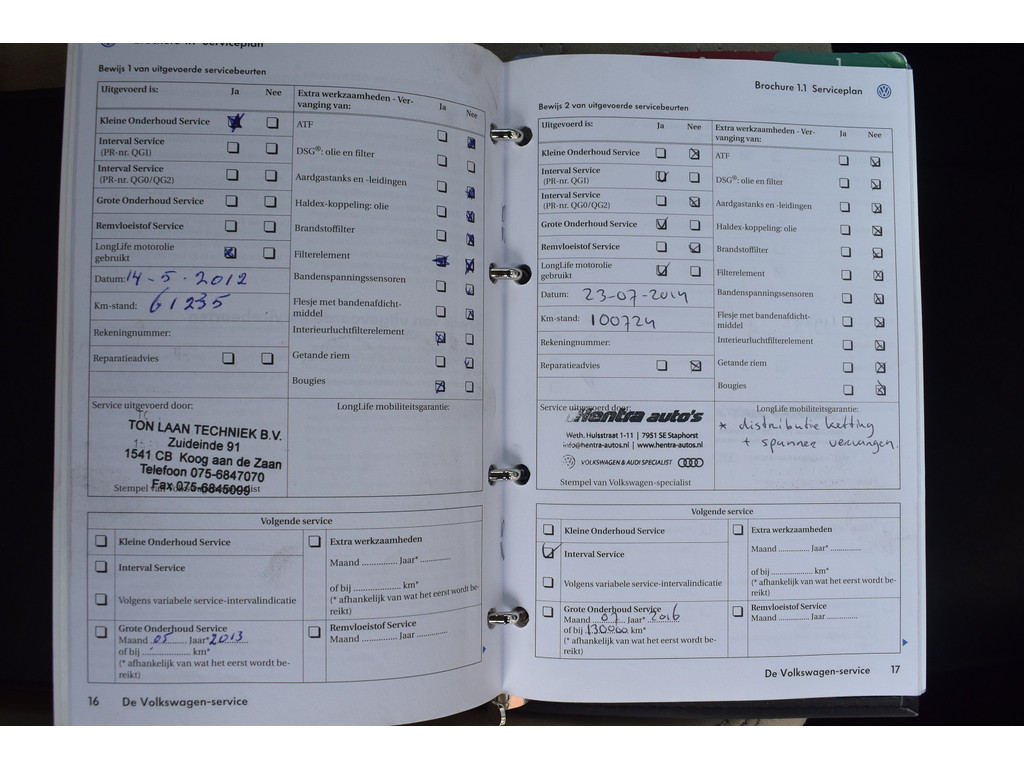 Brochure 1.1 Serviceplan
Bewijs 1 van uitgevoerde servicebeurten
Uitgevoerd is: Ja Nee
Kleine Onderhoud Service
Interval Service
(PR-nr. QG1)
Interval Service
(PR-nr. QG0/QG2)
Grote Onderhoud Service
Remvloeistof Service
LongLife motorolie
gebruikt
Datum: 14-5-2012
Km-stand: 61235
Rekeningnummer:
Reparatieadvies
Extra werkzaamheden - Ver-
vanging van: Ja Nee
ATF
DSG®: olie en filter
Aardgastanks en -leidingen
Haldex-koppeling: olie
Brandstoffilter
Filterelement
Bandenspanningssensoren
Flesje met bandenafdicht-
middel
Interieurluchtfilterelement
Getande riem
Bougies
Service uitgevoerd door:
TON LAAN TECHNIEK B.V.
Zuideinde 91
1541 CB Koog aan de Zaan
Telefoon 075-6847070
Fax 075-6845099
Stempel van Volkswagen-specialist
LongLife mobiliteitsgarantie:
Volgende service
Kleine Onderhoud Service
Interval Service
Volgens variabele service-intervalindicatie
Grote Onderhoud Service
Maand 05 Jaar* 2013
of bij ............ km*
(* afhankelijk van wat het eerst wordt be-
reikt)
Extra werkzaamheden
Maand ............ Jaar* ............
of bij ............ km*
(* afhankelijk van wat het eerst wordt be-
reikt)
Remvloeistof Service
Maand ............ Jaar ............
16 De Volkswagen-service
Brochure 1.1 Serviceplan
Bewijs 2 van uitgevoerde servicebeurten
Uitgevoerd is: Ja Nee
Kleine Onderhoud Service
Interval Service
(PR-nr. QG1)
Interval Service
(PR-nr. QG0/QG2)
Grote Onderhoud Service
Remvloeistof Service
LongLife motorolie
gebruikt
Datum: 23-07-2014
Km-stand: 100724
Rekeningnummer:
Reparatieadvies
Extra werkzaamheden - Ver-
vanging van: Ja Nee
ATF
DSG®: olie en filter
Aardgastanks en -leidingen
Haldex-koppeling: olie
Brandstoffilter
Filterelement
Bandenspanningssensoren
Flesje met bandenafdicht-
middel
Interieurluchtfilterelement
Getande riem
Bougies
Service uitgevoerd door:
Hentra auto's
Weth. Huisstraat 1-11 | 7951 SE Staphorst
info@hentra-autos.nl | www.hentra-autos.nl
VOLKSWAGEN & AUDI SPECIALIST
Stempel van Volkswagen-specialist
LongLife mobiliteitsgarantie:
* distributie ketting
+ spanner vervangen
Volgende service
Kleine Onderhoud Service
Interval Service
Volgens variabele service-intervalindicatie
Grote Onderhoud Service
Maand 07 Jaar* 2016
of bij 130000 km*
(* afhankelijk van wat het eerst wordt be-
reikt)
Extra werkzaamheden
Maand ............ Jaar* ............
of bij ............ km*
(* afhankelijk van wat het eerst wordt be-
reikt)
Remvloeistof Service
Maand ............ Jaar ............
De Volkswagen-service 17